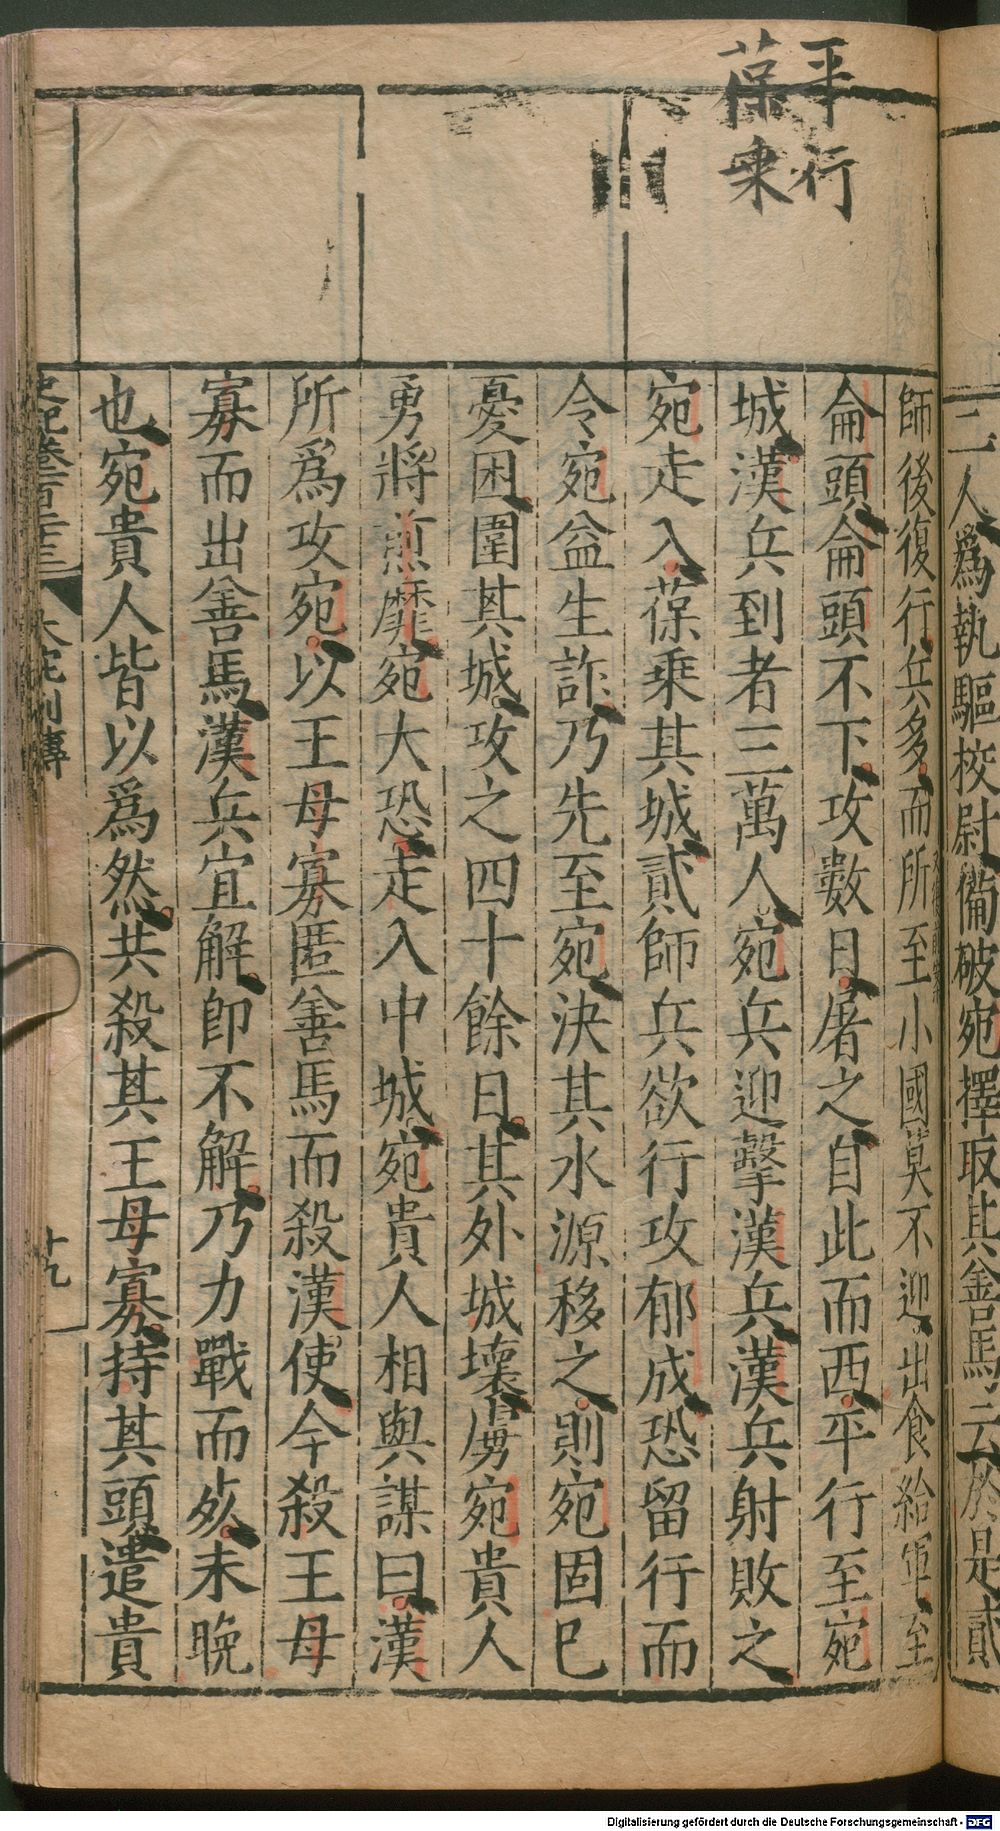 二人爲執驅校尉備破宛擇取其善馬云於是貳
師後復行兵多而所至小國莫不迎出食給軍至
侖頭侖頭不下攻數日屠之自此而西平行至宛
城漢兵到者三萬人宛兵迎擊漢兵漢兵射敗之
宛走入葆乗其城貳師兵欲行攻郁成恐留行而
令宛益生詐乃先至宛決其水源移之則宛固已
憂困圍其城攻之四十餘日其外城壞虜宛貴人
勇將煎靡宛大恐走入中城宛貴人相與謀曰漢
所爲攻宛以王母寡匿善馬而殺漢使今殺王母
寡而出善馬漢兵宜解即不解乃力戰而死未晚
也宛貴人皆以爲然共殺其王母寡持其頭遣貴
平行
葆乗
史記卷百二十三 大宛列傳 十九
Digitalisierung gefördert durch die Deutsche Forschungsgemeinschaft - DFG